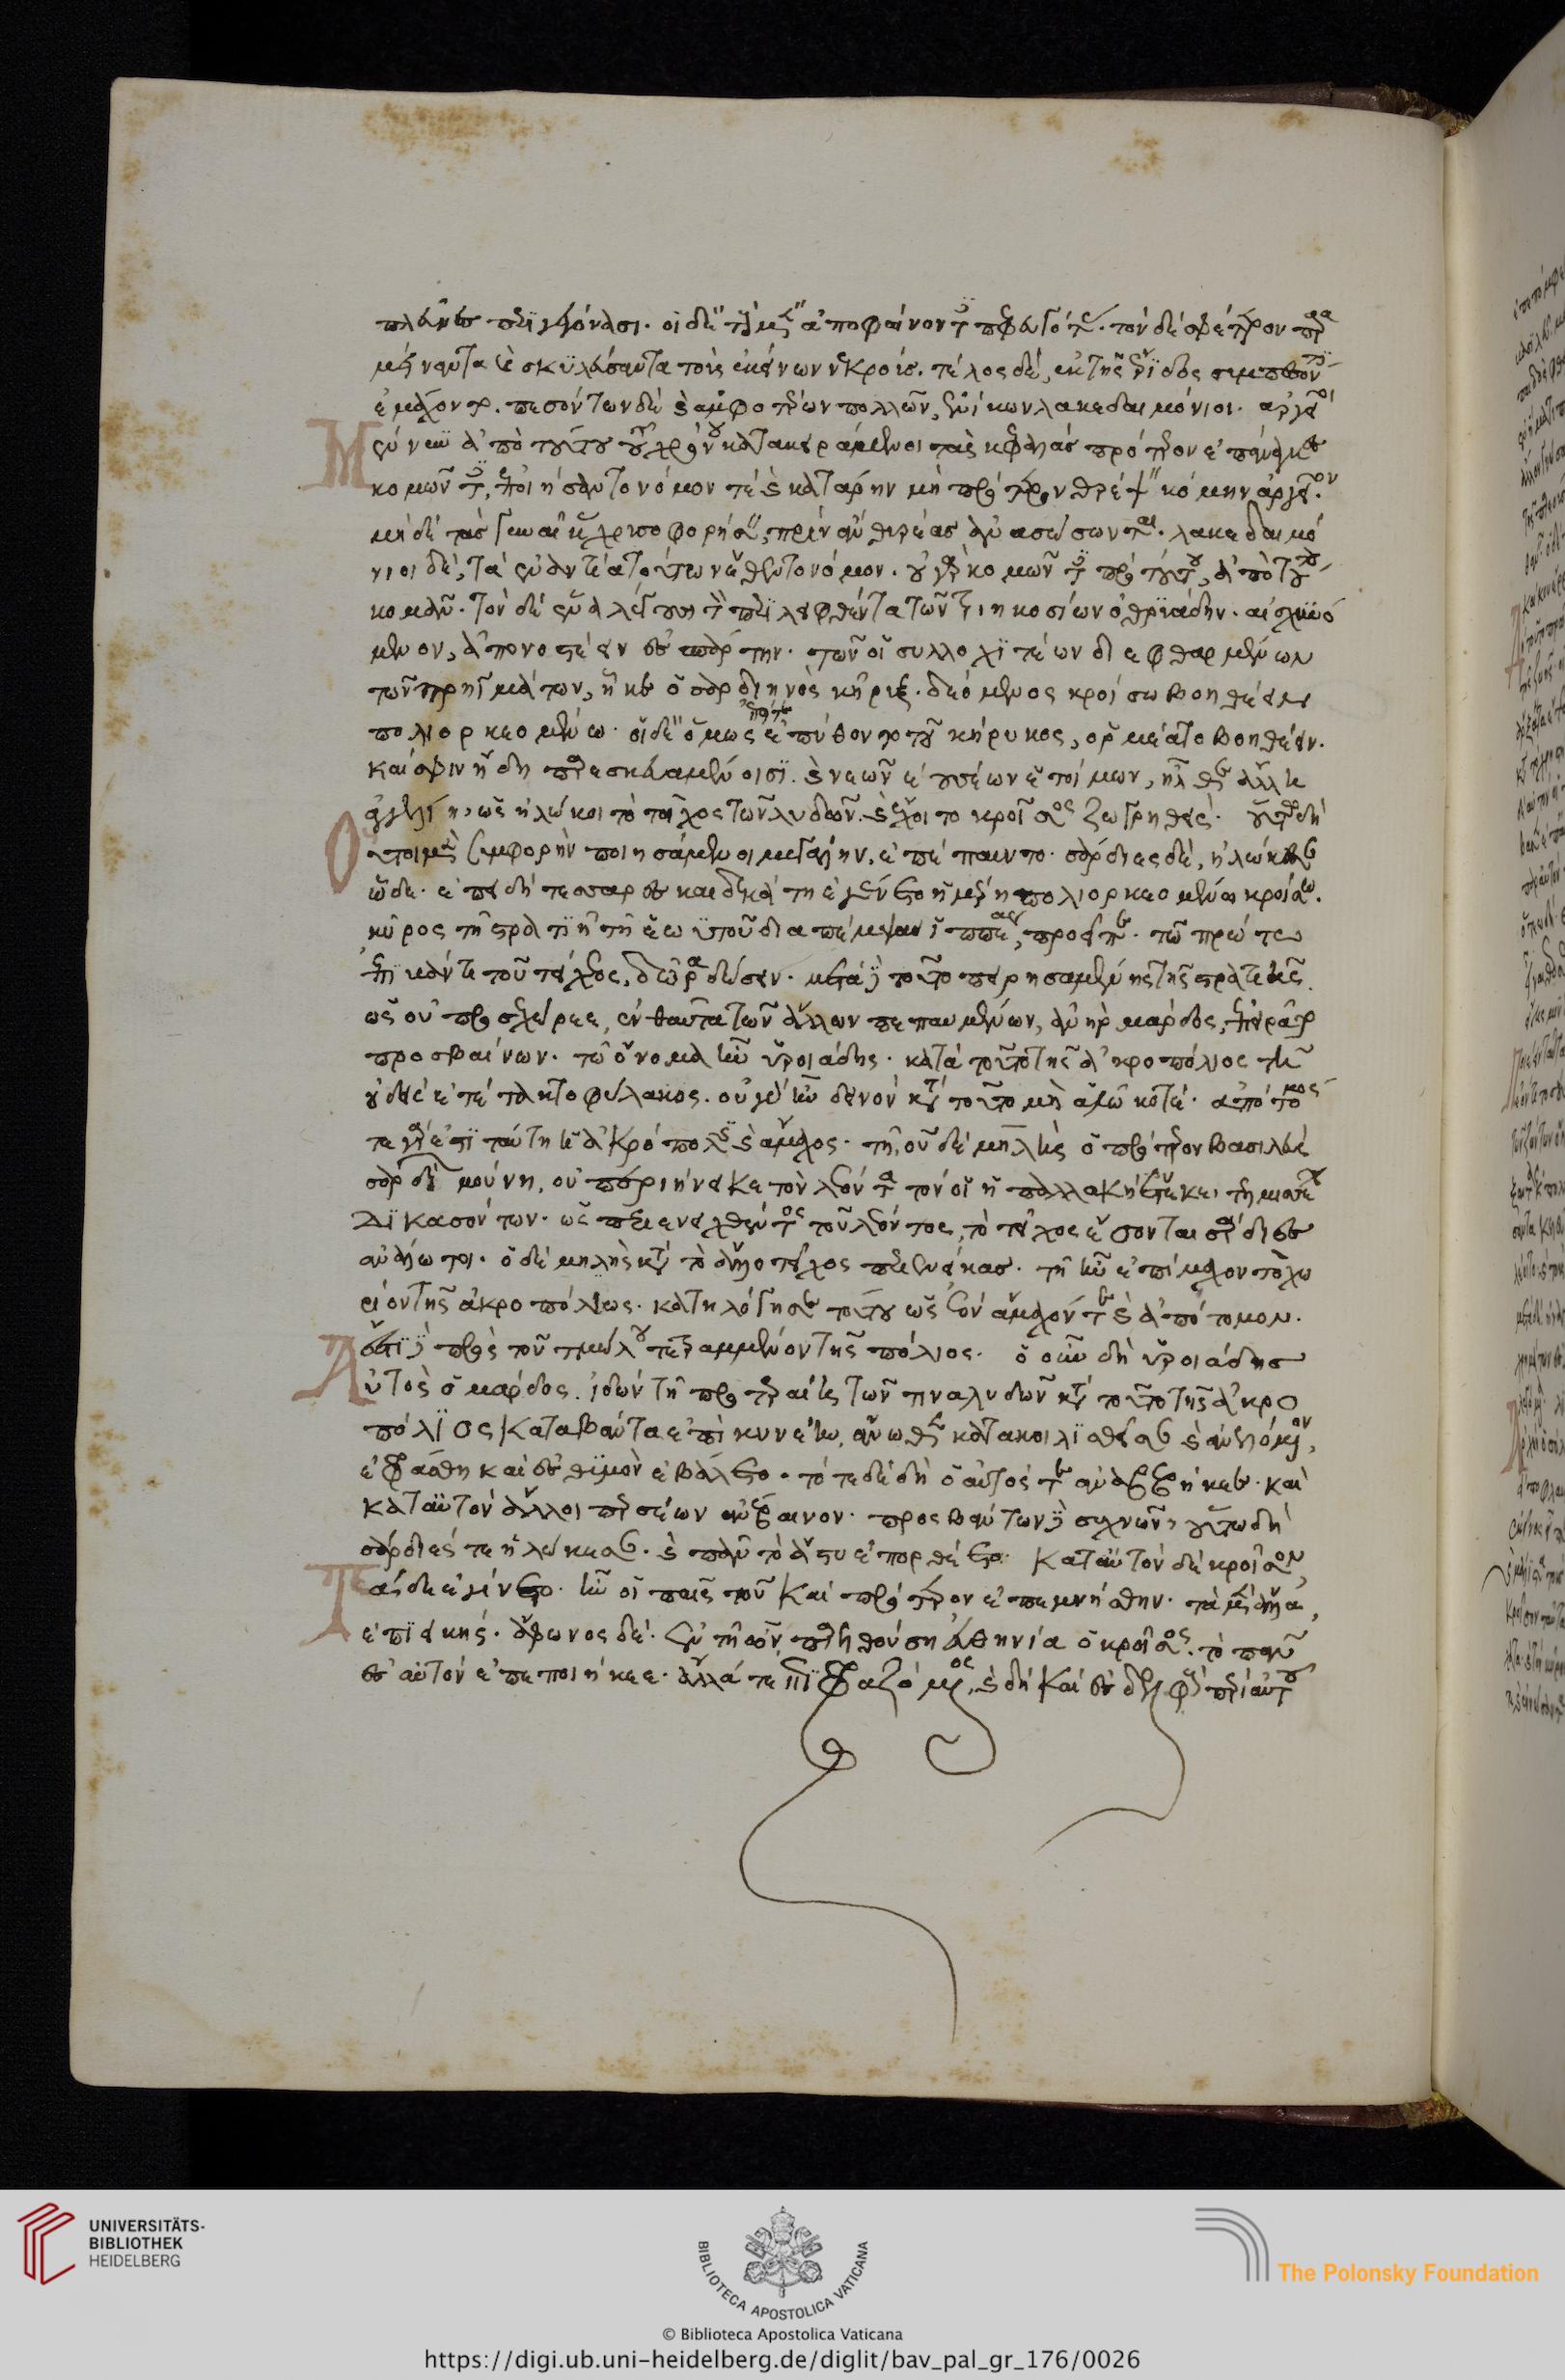 πλεῦνες περιγεγόνασι. οἱ δὲ τοὺς μὲν ἀποφαίνοντες πεφευγότας. τὸν δὲ σφέτερον παρα
μείναντα καὶ σκυλεύσαντα τοὺς ἐκείνων νεκρούς. τέλος δὲ, ἐκ τῆς ἔριδος συμπεσόντες
ἐμάχοντο. πεσόντων δὲ καὶ ἀμφοτέρων πολλῶν, ἐνίκων λακεδαιμόνιοι. ἀργεῖοι
Μέν νυν ἀπὸ τούτου τοῦ χρόνου κατακειράμενοι τὰς κεφαλὰς πρότερον ἐπάναγκες
κομῶντες, ἐποιήσαντο νόμον τε καὶ κατάρην μὴ πρότερον θρέψειν κόμην ἀργείων.
μηδὲ τὰς γυναῖκας χρυσοφορήσειν, πρὶν ἂν θυρέας ἀνασώσωνται. λακεδαιμό
νιοι δὲ, τὰ ἐναντία τούτων ἔθεντο νόμον. οὐ γὰρ κομῶντες πρὸ τούτου, ἀπὸ τούτου
κομᾶν. τὸν δὲ ἕνα λέγουσι τὸν περιλειφθέντα τῶν τριηκοσίων ὀθρυάδην. αἰσχυνό
μενον, ἀπονοστέειν ἐς σπάρτην. τῶν οἱ συλλοχιτέων διεφθαρμένων
τῶν πρηγμάτων, ἧκε ὁ σαρδιηνὸς κῆρυξ. δεόμενος κροίσω βοηθέειν
πολιορκεομένω. οἱ δὲ ὅμως ἐπεί τε ἐπύθοντο τοῦ κήρυκος, ὁρμέατο βοηθέειν.
καί σφιν ἤδη παρεσκευασμένοισι. καὶ νεῶν ἐουσέων ἑτοίμων, ἦλθε ἄλλη
ἀγγελίη, ὡς ἡλώκοι τὸ τεῖχος τῶν λυδῶν. καὶ ἔχοιτο κροῖσος ζωγρηθείς. οὕτω δὴ
Οὗτοι μὲν συμφορὴν ποιησάμενοι μεγάλην, ἐπέπαυντο. σάρδιες δὲ, ἡλώκασι
ὧδε. ἐπειδὴ τεσσαρεσκαιδεκάτη ἐγένετο ἡμέρη πολιορκεομένω κροίσω.
κῦρος τῆ στρατιῆ τῆ ἑωϋτοῦ διαπέμψας ἱππέας, προεῖπε. τῶ πρώτω
ἐπιβάντι τοῦ τείχεος, δῶρα δώσειν. μετὰ δὲ τοῦτο πειρησαμένης τῆς στρατιῆς.
ὡς οὐ προεχώρεε, ἐνθαῦτα τῶν ἄλλων πεπαυμένων, ἀνὴρ μάρδος, ἐπειρᾶτο
προσβαίνων. τῶ οὔνομα ἦν ὑροιάδης. κατὰ τοῦτο τῆς ἀκροπόλιος τῆ
οὐδεὶς ἐτέτακτο φύλακος. οὐ γὰρ ἦν δεινὸν κατὰ τοῦτο μὴ ἁλῶ κοτέ. ἀπότομος
τε γάρ ἐστι ταύτη ἡ ἀκρόπολις καὶ ἄμαχος. τῆ οὐδὲ μήλης ὁ πρότερον βασιλεὺς
σαρδίων μούνη, οὐ περιήνεικε τὸν λέοντα τόν οἱ ἡ παλλακὴ ἔτεκε, τελμησσέων
δικασάντων. ὡς περιενειχθέντος τοῦ λέοντος, τὸ τεῖχος ἔσονται σάρδιες
ἀνάλωτοι. ὁ δὲ μήλης κατὰ τὸ ἄλλο τεῖχος περιενείκας. τῆ ἦν ἐπίμαχον τὸ χω
ρίον τῆς ἀκροπόλιος. κατηλόγησε τοῦτο ὡς ἐὸν ἄμαχόν τε καὶ ἀπότομον.
ἔστι δὲ πρὸς τοῦ τμώλου τετραμμένον τῆς πόλιος. ὁ ὦν δὴ ὑροιάδης
Αὐτὸς ὁ μάρδος. ἰδὼν τῆ προτεραίη τῶν τινα λυδῶν κατὰ τοῦτο τῆς ἀκρο
πόλιος καταβάντα ἐπὶ κυνέην, ἄνωθεν κατακυλισθεῖσαν καὶ ἀνελόμενον,
ἐφράσθη καὶ ἐς θυμὸν ἐβάλετο. τότε δὲ δὴ ὁ αὐτός τε ἀναβεβήκεε. καὶ
κατ' αὐτὸν ἄλλοι περσέων ἀνέβαινον. προσβάντων δὲ συχνῶν, οὕτω δὴ
σάρδιές τε ἡλώκεσαν. καὶ πᾶν τὸ ἄστυ ἐπορθέετο. κατ' αὐτὸν δὲ κροῖσον,
Τάδε ἐγίνετο. ἦν οἱ παῖς τοῦ καὶ πρότερον ἐπεμνήσθην. τὰ μὲν ἄλλα,
ἐπιεικής. ἄφωνος δέ. ἐν τῆ ὦν παρελθούση εὐεστοῖ ὁ κροῖσος, τὸ πᾶν
ἐς αὐτὸν ἐπεποιήκεε. ἄλλα τε ἐπιφραζόμενος, καὶ δὴ καὶ ἐς δελφοὺς περὶ αὐτοῦ
UNIVERSITÄTS-
BIBLIOTHEK
HEIDELBERG
BIBLIOTECA APOSTOLICA VATICANA
The Polonsky Foundation
© Biblioteca Apostolica Vaticana
https://digi.ub.uni-heidelberg.de/diglit/bav_pal_gr_176/0026